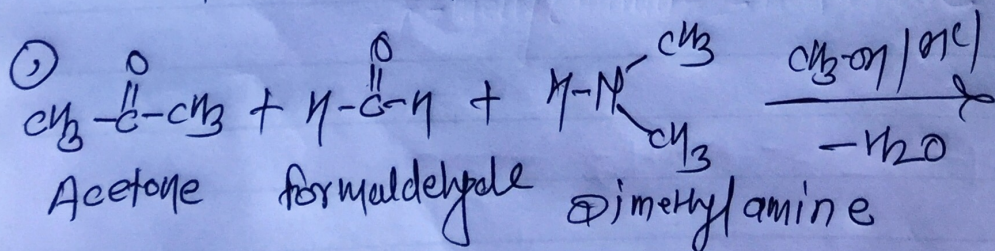 CH3-C-CH3 + H-C-H + H-N CH3 CH3-OH/HCl
O O CH3 -H2O
Acetone formaldehyde Dimethylamine